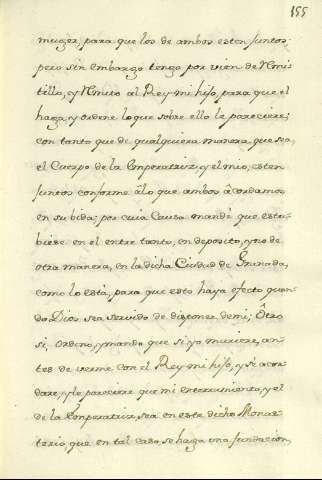 155
muger, para que los de ambos esten juntos,
pero sin embargo tengo por vien de Remi-
tillo, y Remito al Rey mi hijo, para que el
haga, y ordene lo que sobre ello le pareciere;
con tanto que de qualquiera manera que sea,
el Cuerpo de la Emperatriz, y el mio, esten
juntos conforme âlo que ambos âcordamos
en su bida; por cuia Causa mandé que estu-
biese en el entre tanto, en deposito, y no de
otra manera, en la dicha Ciudad de Granada,
como lo está, para que esto haya efecto quan-
do Dios sea servido de disponer de mi; Ôtro
si, Ordeno, y mando que si yo muriere, an-
tes de verme con el Rey mi hijo, y se acor-
dare, y le pareciere que mi enterramiento, y el
de la Emperatriz, sea en este dicho Monas-
terio, que en tal caso, se haga una fundacion,